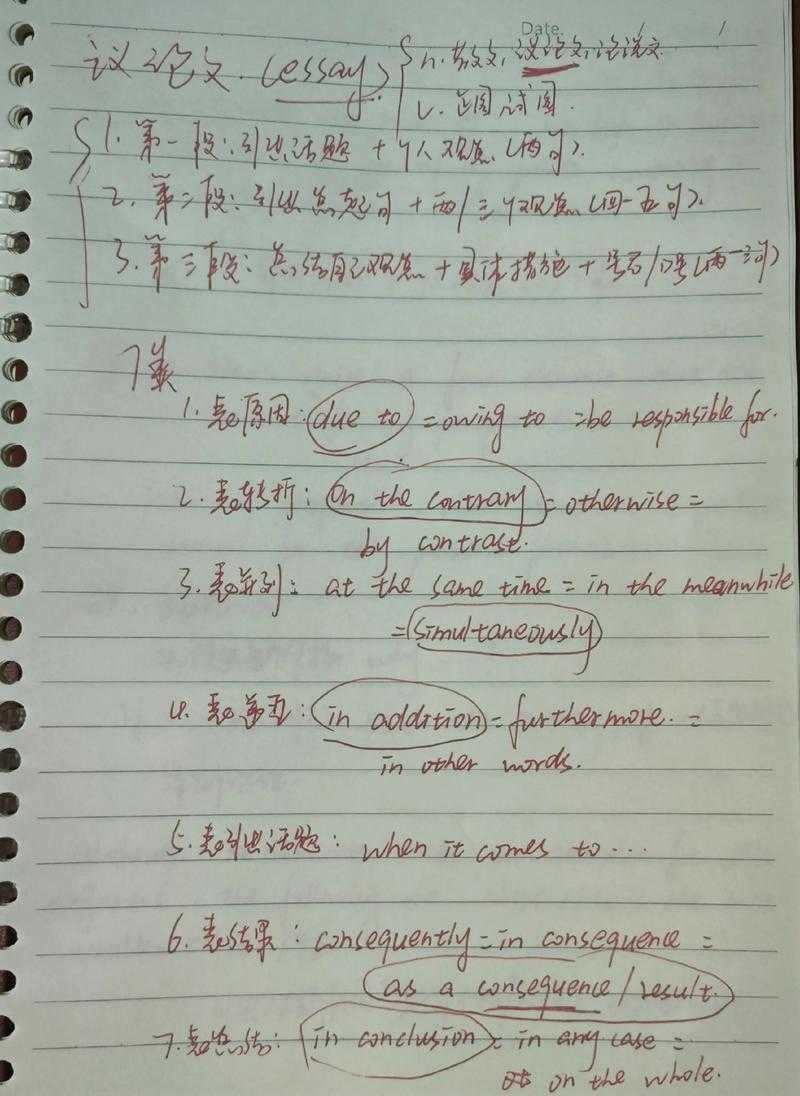 Date / /
议论文.(essay) { n.散文,议论文,论说文
v.企图,试图.
1.第一段:引出话题+个人观点(两句).
2.第二段:引出总起句+两/三个观点(四-五句).
3.第三段:总结自己观点+具体措施+号召/口号(两-三句)
7类
1.表原因:due to =owing to =be responsible for.
2.表转折:On the contrary = otherwise =
by contrast.
3.表并列: at the same time = in the meanwhile
=simultaneously
4.表递进:in addition = furthermore. =
in other words.
5.表引出话题: when it comes to ...
6.表结果: consequently = in consequence =
as a consequence / result.
7.表总结: in conclusion = in any case =
on the whole.